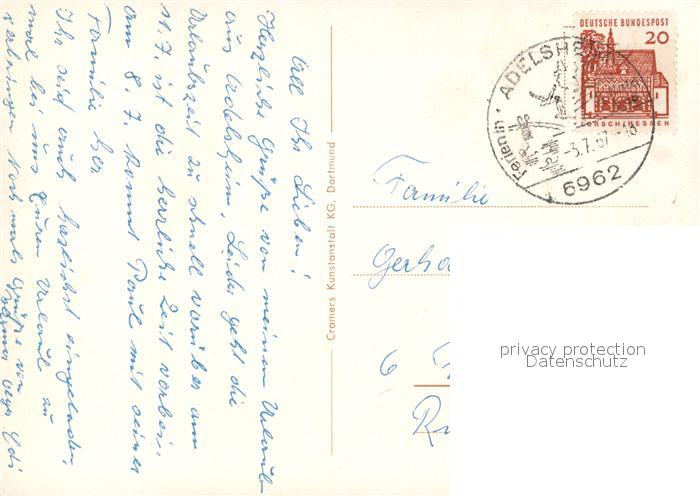 All Ihr Lieben!
Herzliche Grüße von meinem Urlaub
aus Adelsheim. Leider geht die
Urlaubszeit zu schnell vorüber am
11. 7. ist die herrliche Zeit vorbei.
am 8. 7. kommt Paul mit seiner
Familie her
Ihr seid auch herzlichst eingeladen,
mal bei uns Euren Urlaub zu
verbringen Nochmals Grüße von
Cramers Kunstanstalt KG, Dortmund
DEUTSCHE BUNDESPOST
20
LORSCH/HESSEN
Ferien in ADELSHEIM
3.7.67-18
6962
Familie
Gerha
6
privacy protection
www.delcampe.net